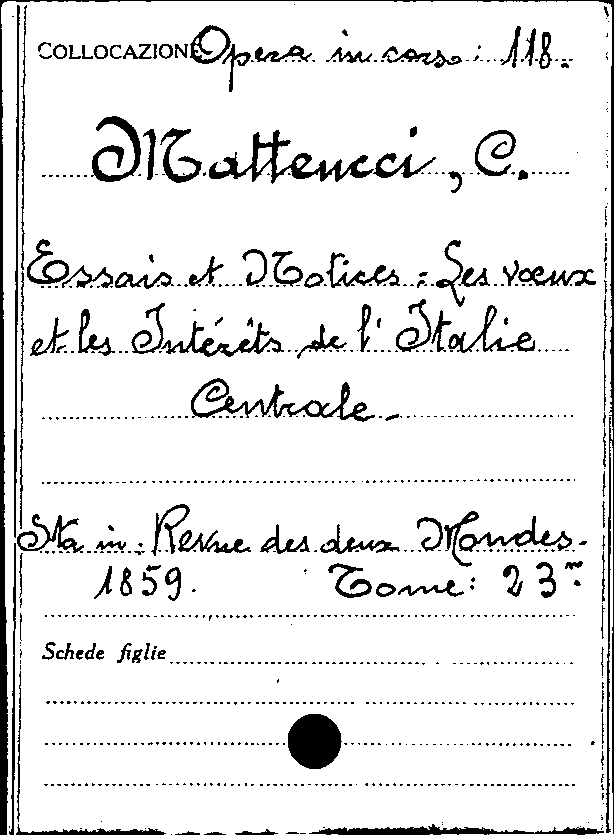 COLLOCAZIONE Opera in corso: 118.
Matteucci, C.
Essais et Notices: Les vœux
et les Intérêts de l'Italie
Centrale.
Sta in: Revue des deux Mondes.
1859. Tome: 23m.
Schede figlie